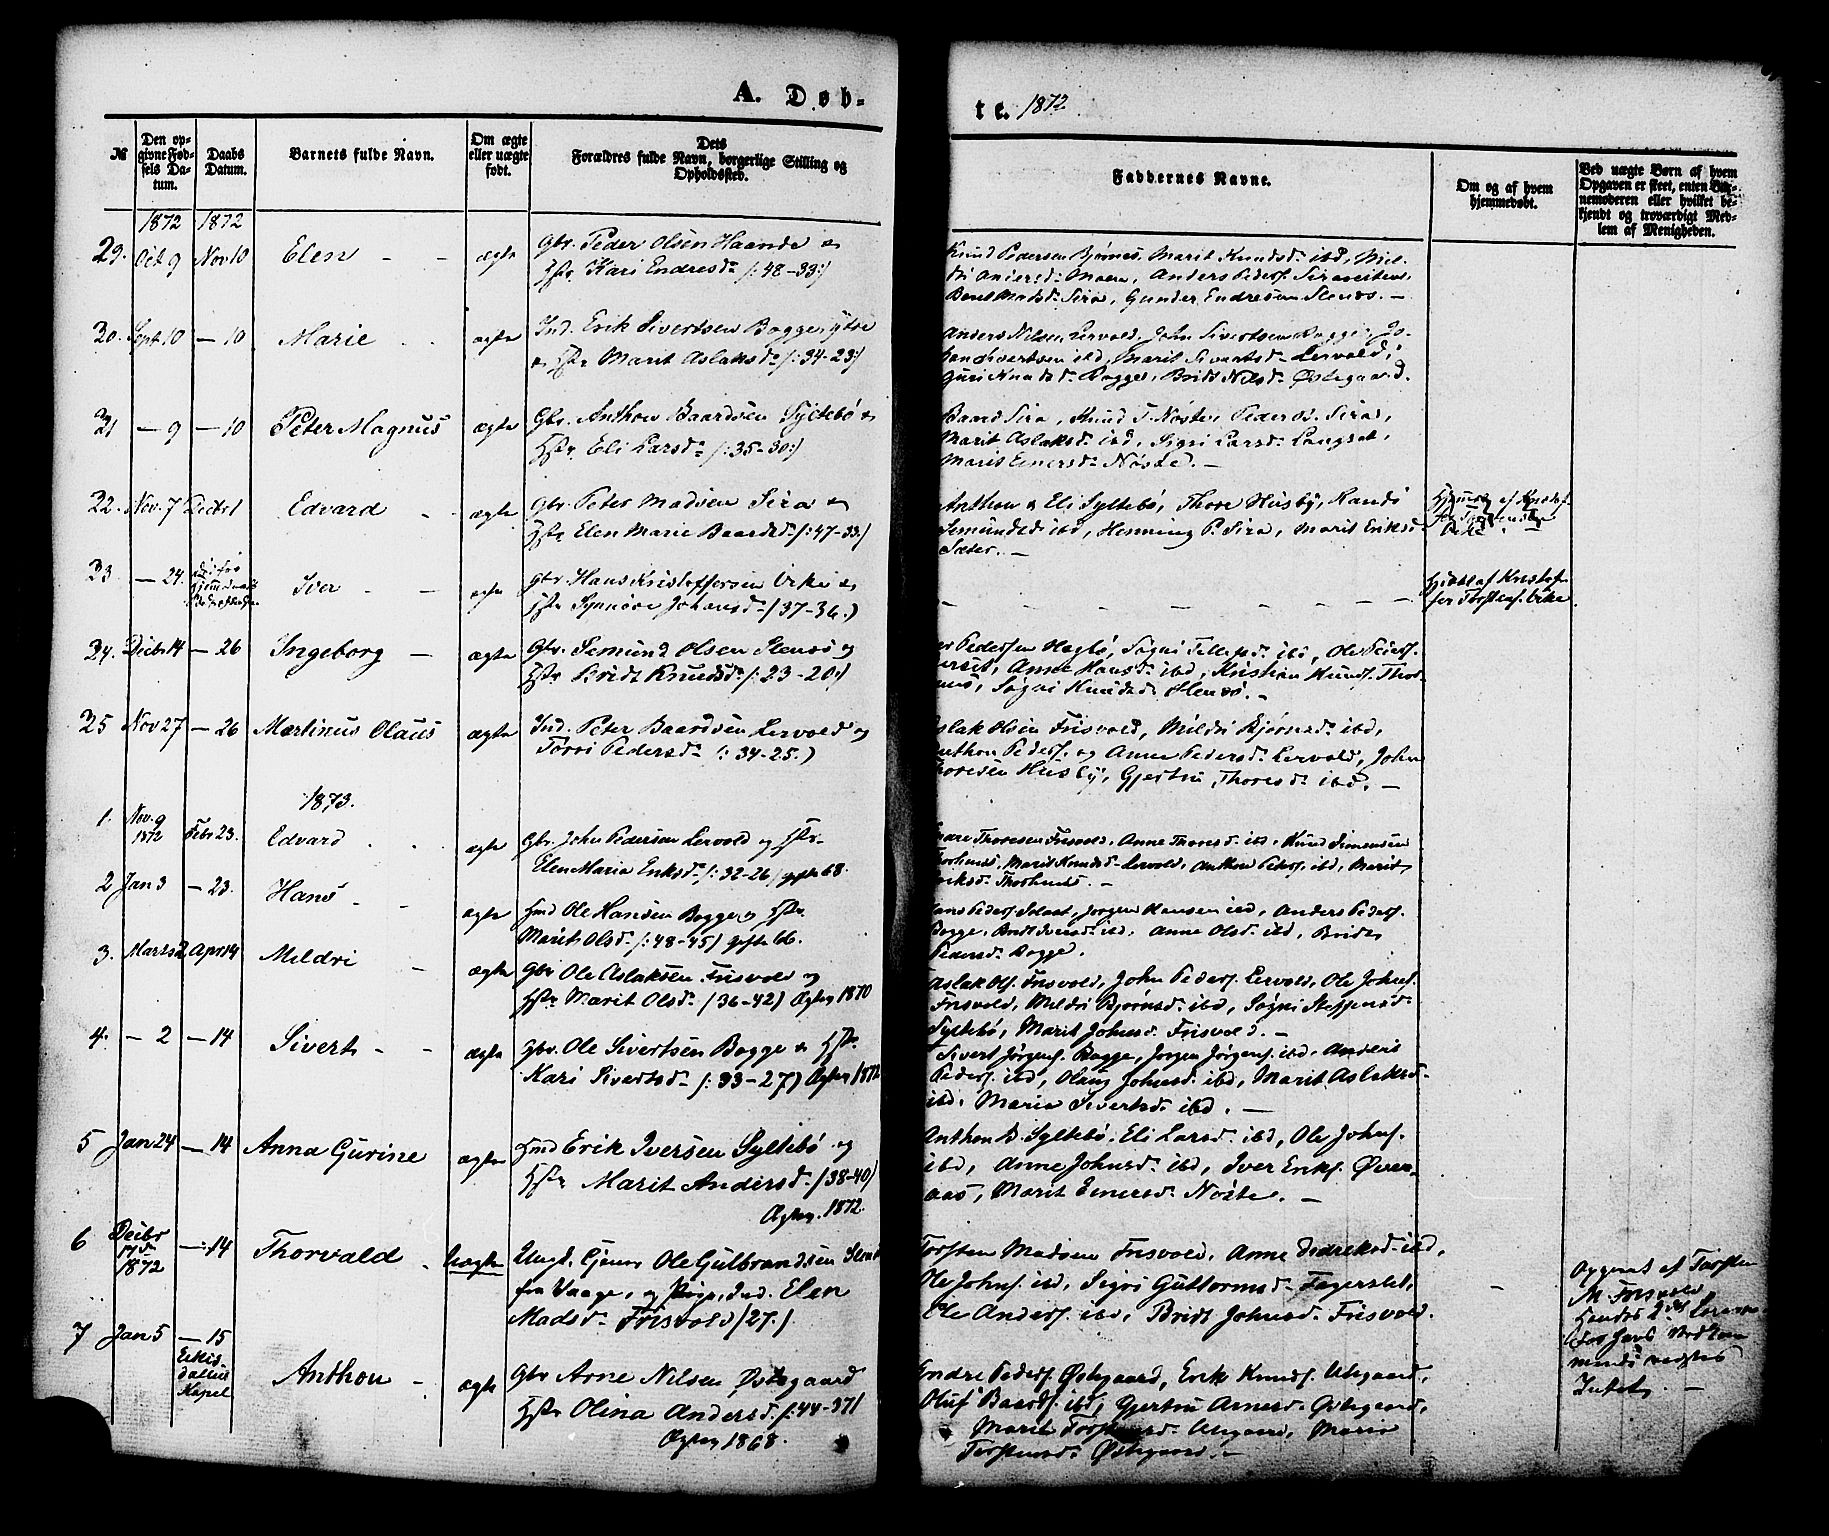 A. Døb-
te. 1872
№
Den op-
givne Fød-
sels Da-
tum.
Daabs
Datum.
Barnets fulde Navn.
Om ægte
eller uægte
født.
Dets
Forældres fulde Navn, borgerlige Stilling og
Opholdssted.
Faddernes Navne.
Om og af hvem
hjemmedøbt.
Ved uægte Børn af hvem
Opgaven er skeet, enten Bar-
nemoderen eller hvilket be-
kjendt og troværdigt Med-
lem af Menigheden.
1872 1872
29. Oct 9 Nov 10 Elen - - ægte Gbr. Peder Olsen Haande &
Hstr Kari Endresdr /:48-33:/
Knud Pedersen Bjørnes, Marit Knudsdr ibd,
Andersdr Moen, Anders Peders.
Beret Madsdr Sira, Gunder Endresen Slenes. -
30. Sept 10 - 10 Marie ægte Ind. Erik Sivertsen Bogge ytre
& Hstr Marit Aslaksdr /:34-23:/
Anders Nilsen Lervold, John Sivertsen Bogge, Jo-
han Sivertsen ibd, Marit Sivertsdr Lervold,
Guri Knudsdr Bogge, Brit Nilsdr Østegaard.
31 - 9 - 10 Peter Magnus ægte Gbr. Anthon Baardsen Syltebø &
Hstr. Eli Larsdr /:35-30:/
Baard Sira, Knud T. Nøste, Peder O. Sira,
Marit Aslaksdr ibd, Sigri Larsdr Langset,
Marit Einersdr Nøste. -
32. Nov. 7 Decbr 1 Edvard - ægte Gbr. Peter Madsen Sira &
Hstr Elen Marie Baardsdr /:47-33:/
Anthon & Eli Syltebø, Thore Husby, Randi
Semundsdr ibd, Henning P. Sira, Marit Eriksdr
Sæter. -
Hjemdøbt af Kristof-
fer Torstensen
Virke
33 - 24. Iver - - ægte Gbr Hans Kristoffersen Virke &
Hstr Synnøve Johansdr /37-36./
Hjdøbt af Kristof-
fer Torstens. Virke
34. Decbr 14 - 26 Ingeborg - ægte Gbr. Semund Olsen Slensø og
Hstr Bridt Knudsdr /:23-20:/
Pedersen Hegbø, Sigri Tellefsdr ibd, Ole Peders.
Anne Hansdr ibd, Kristian Knuds. Thor-
Sigri Knudsdr Slensø. -
25 Nov 27 - 26 Martinus Olaus ægte Ind. Peter Baardsen Lervold og
Torri Pedersdr /:34-25./
Aslak Olsen Frisvold, Mildri Bjørnsdr ibd,
Anthon Peders. og Anne Pedersdr Lervold, John
Thoresen Husby, Gjertru Thoresdr ibd. -
1873.
1. Nov. 9
1872 Febr 23. Edvard ægte Gbr. John Pedersen Lervold og Hstr.
Elen Maria Eriksdr /:32-26/ gifte 68.
Thoresen Frisvold, Anne Thoresdr ibd, Knud Simensen
Marit Knudsdr Lervold, Anthon Peders. ibd, Marit
Eriksdr -
2 Jan 3 - 23. Hans - - ægte Hmd Ole Hansen Bogge og Hstr
Marit Olsdr /:48-45/ gifte 66.
Hans Peders. Jorgen Hansen ibd, Anders Peders.
Bogge, Bridt Iversdr ibd, Anne Olsdr ibd, Bridt
Pedersdr Bogge.
3. Marts 2 Apr 14 Mildri - ægte Gbr Ole Aslaksen Frisvold og
Hstr Marit Olsdr /36-42/ Ægtev 1870
Aslak Ols. Frisvold, John Peders. Lervold, Ole Johns.
Frisvold, Mildri Bjørnsdr ibd, Sigri Steffensdr
Syltebø, Marit Johnsdr Frisvold. -
4. - 2 - 14 Sivert - - ægte Gbr. Ole Sivertsen Bogge & Hstr.
Kari Sivertsdr /:33-27/ Ægtev 1872
Sivert Jørgens. Bogge, Jorgen Jørgens. ibd, Anders
Peders. ibd, Olaug Johnsdr ibd, Marit Aslaksdr
ibd. Maria Sivertsdr ibd. -
5 Jan 24 - 14 Anna Gurine ægte Hmd Erik Iversen Syltebø og
Hstr Marit Andersdr /38-40/
Ægtev. 1872.
Anthon B. Syltebø, Eli Larsdr ibd, Ole Johns.
ibd, Anne Johnsdr ibd, Iver Eriks. Øver-
aas, Marit Einersdr Nøste. -
6 Decbr
17de
1872 - 14 Thorvald - Uægte Ungk. Tjener Ole Gulbrandsen
fra Vaage, og Pige, Ind. Elen
Madsdr Frisvold /27./
Torsten Madsen Frisvold, Anne Didreksdr ibd,
Ole Johns. ibd, Sigri Guttormsdr Fagerslet,
Ole Anders. ibd, Bridt Johnsdr Frisvold.
Opgivet af Torsten
M. Frisvold
Hendes 2det
7 Jan 5 - 15
Eikis-
dalens
Kapel
Anthon - ægte Gbr Arne Nilsen Østegaard
Hstr Olina Andersdr /:44-37/
Ægtev 1868.
Endre Peders. Østegaard, Erik Knuds. Utigaard,
Oluf Baards. ibd, Gjertru Arnesdr Østegaard,
Marit Torstensdr Utigaard, Maria
Torstensdr Østegaard. -